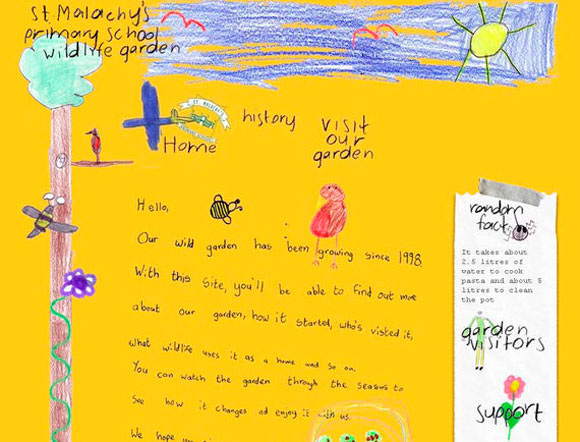 St Malachy's
primary school
wildlife garden
ST. MALACHY'S
Home
history
visit
our
garden
Hello,
Our wild garden has been growing since 1998.
With this site, you'll be able to find out more
about our garden, how it started, who's visited it,
what wildlife uses it as a home and so on.
You can watch the garden through the seasons to
see how it changes and enjoy it with us.
We hope
random
fact
It takes about
2.5 litres of
water to cook
pasta and about 5
litres to clean
the pot
garden
visitors
support